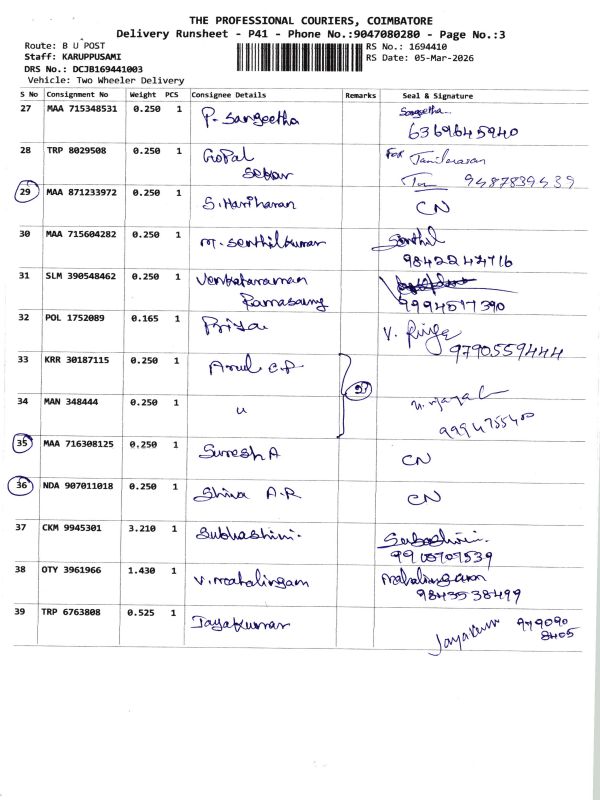 THE PROFESSIONAL COURIERS, COIMBATORE
Delivery Runsheet - P41 - Phone No.:9047080280 - Page No.:3
Route: B U POST
RS No.: 1694410
Staff: KARUPPUSAMI
RS Date: 05-Mar-2026
DRS No.: DCJB169441003
Vehicle: Two Wheeler Delivery
S No Consignment No Weight PCS Consignee Details Remarks Seal & Signature
27 MAA 715348531 0.250 1 P. Sangeetha Sangeetha
6369645940
28 TRP 8029508 0.250 1 Gopal For Tamilarasan
Sekar 9487839439
29 MAA 871233972 0.250 1 S. Hariharan CN
30 MAA 715604282 0.250 1 M. Senthilkumar Senthil
9842247716
31 SLM 390548462 0.250 1 Venkataraman
Ramasamy 9994517390
32 POL 1752089 0.165 1 Priya V. Priya
9790559444
33 KRR 30187115 0.250 1 Arul C.P
34 MAN 348444 0.250 1 u
9994755400
35 MAA 716308125 0.250 1 Suresh A CN
36 NDA 907011018 0.250 1 Shiva A.R CN
37 CKM 9945301 3.210 1 Subhashini. Subashini.
9905709539
38 OTY 3961966 1.430 1 V. Mahalingam Mahalingam
9843538499
39 TRP 6763808 0.525 1 Jayakumar Jayakumar 979090
8405